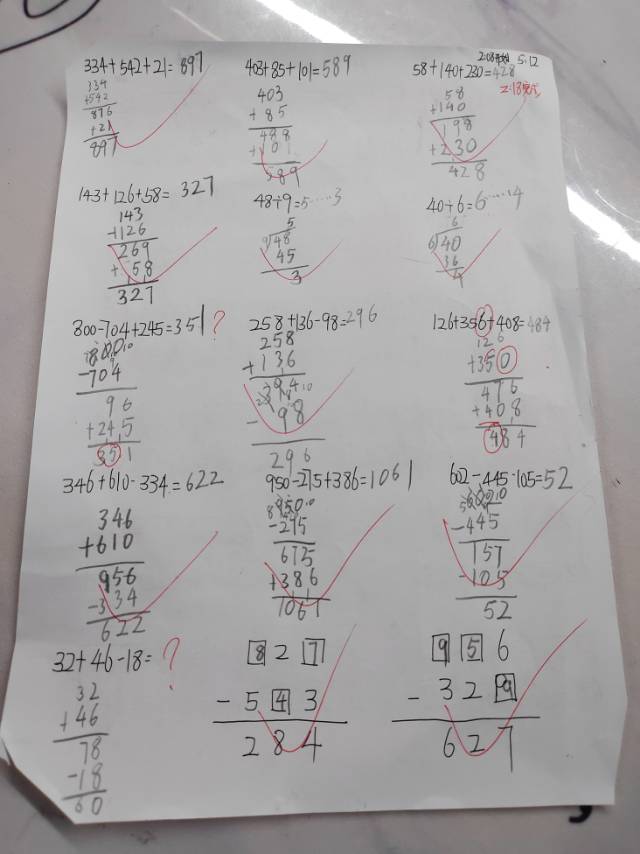 2:08开始 5.12
334+542+21=897
403+85+101=589
58+140+230=428
2:18完成
334
+542
876
+21
897
403
+85
488
+101
589
58
+140
198
+230
428
143+126+58=327
48÷9=5……3
40÷6=6……4
143
+126
269
+58
327
5
9 48
45
3
6
6 40
36
4
800-704+245=351?
258+136-98=296
126+356+408=484
800
-704
96
+245
351
258
+136
394
-98
296
126
+350
476
+408
484
346+610-334=622
950-275+386=1061
602-445-105=52
346
+610
956
-334
622
950
-275
675
+386
1061
602
-445
157
-105
52
32+46-18=?
32
+46
78
-18
60
8 2 7
- 5 4 3
2 8 4
9 5 6
- 3 2 9
6 2 7